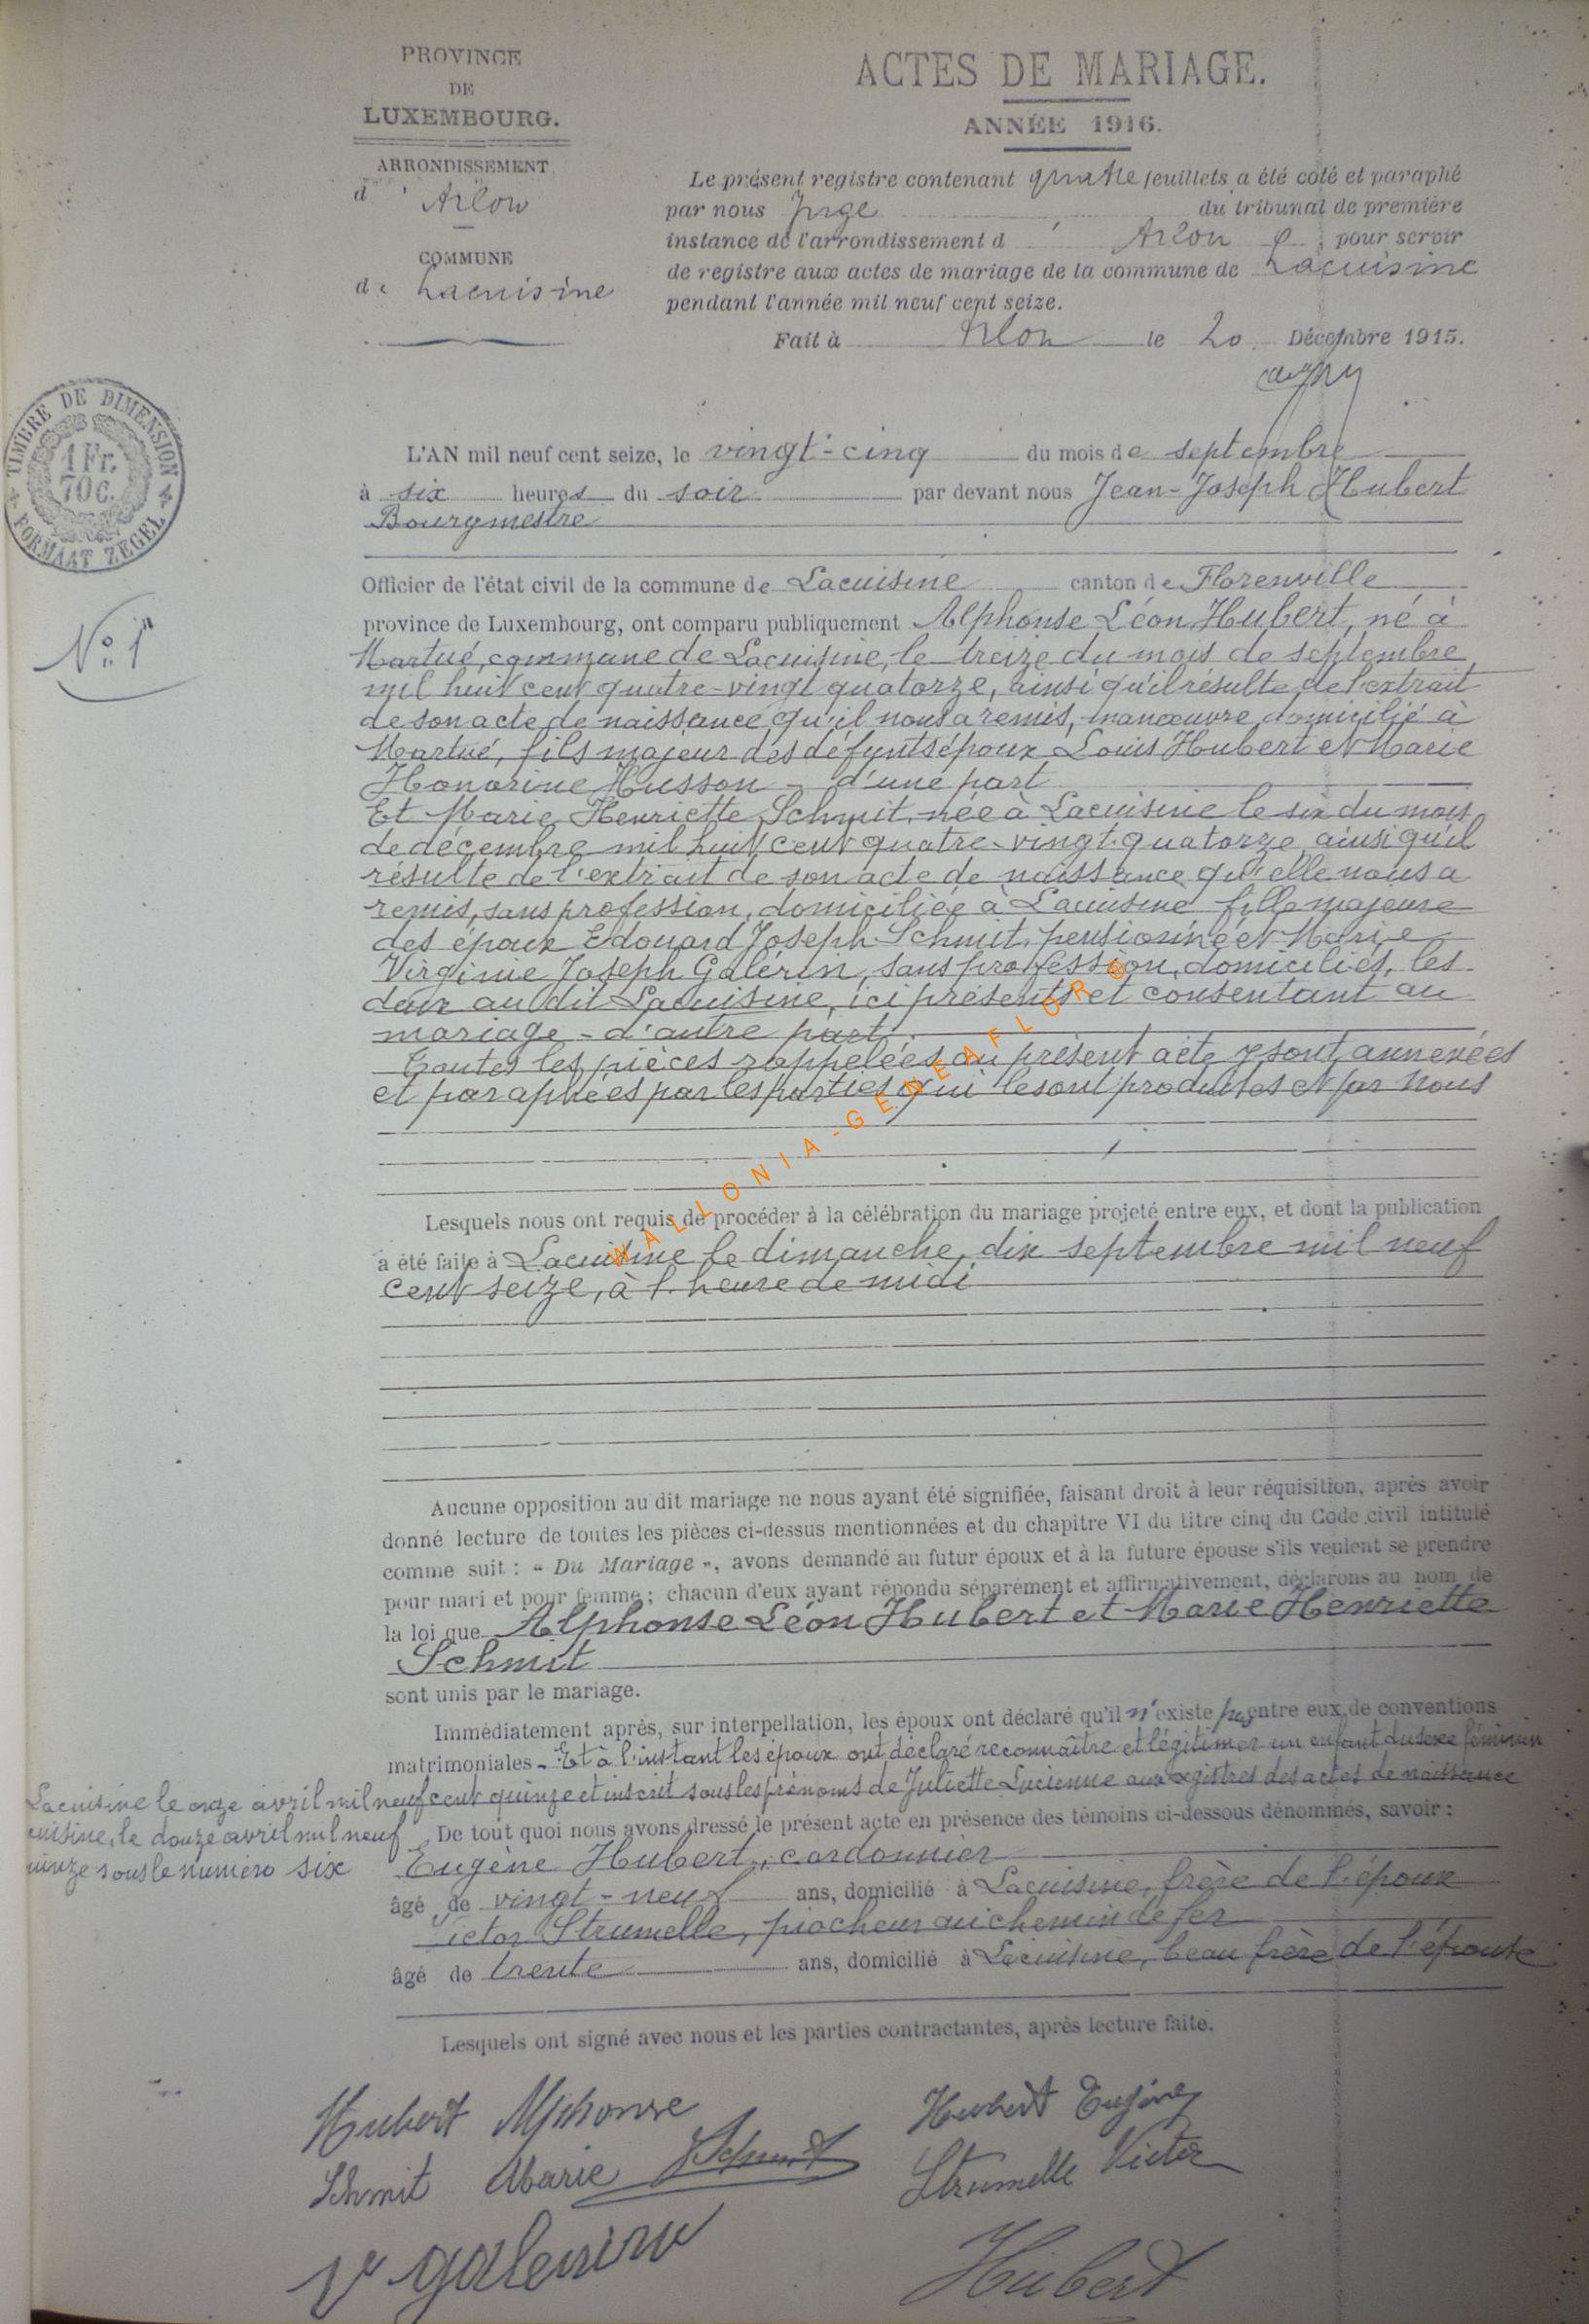 PROVINCE
DE
LUXEMBOURG.
ARRONDISSEMENT
d' Arlon
COMMUNE
de Lacuisine
ACTES DE MARIAGE.
ANNÉE 1916.
Le présent registre contenant quatre feuillets a été coté et paraphé
par nous Juge du tribunal de première
instance de l'arrondissement d' Arlon, pour servir
de registre aux actes de mariage de la commune de Lacuisine
pendant l'année mil neuf cent seize.
Fait à Arlon le 20 Décembre 1915.
TIMBRE DE DIMENSION
1 Fr.
70 C.
FORMAAT ZEGEL
N° 1
L'AN mil neuf cent seize, le vingt-cinq du mois de septembre
à six heures du soir par devant nous Jean-Joseph Hubert
Bourgmestre
Officier de l'état civil de la commune de Lacuisine canton de Florenville
province de Luxembourg, ont comparu publiquement Alphonse Léon Hubert, né à
Martué, commune de Lacuisine, le treize du mois de septembre
mil huit cent quatre-vingt quatorze, ainsi qu'il résulte de l'extrait
de son acte de naissance qu'il nous a remis, manœuvre, domicilié à
Martué, fils majeur des défunts époux Louis Hubert et Marie
Honorine Husson - d'une part
Et Marie Henriette Schmit, née à Lacuisine le six du mois
de décembre mil huit cent quatre-vingt-quatorze, ainsi qu'il
résulte de l'extrait de son acte de naissance qu'elle nous a
remis, sans profession, domiciliée à Lacuisine fille majeure
des époux Edouard Joseph Schmit, pensionné et Marie
Virginie Joseph Galérin, sans profession, domiciliés, les
deux au dit Lacuisine, ici présents et consentant au
mariage - d'autre part.
Toutes les pièces rappelées au présent acte y sont annexées
et paraphées par les parties qui les ont produites et par nous
WALLONIA-GENEAFLOR©
Lesquels nous ont requis de procéder à la célébration du mariage projeté entre eux, et dont la publication
a été faite à Lacuisine le dimanche, dix septembre mil neuf
cent seize, à l'heure de midi
Aucune opposition au dit mariage ne nous ayant été signifiée, faisant droit à leur réquisition, après avoir
donné lecture de toutes les pièces ci-dessus mentionnées et du chapitre VI du titre cinq du Code civil intitulé
comme suit : « Du Mariage », avons demandé au futur époux et à la future épouse s'ils veulent se prendre
pour mari et pour femme ; chacun d'eux ayant répondu séparément et affirmativement, déclarons au nom de
la loi que Alphonse Léon Hubert et Marie Henriette
Schmit
sont unis par le mariage.
Immédiatement après, sur interpellation, les époux ont déclaré qu'il n'existe pas entre eux de conventions
matrimoniales. Et à l'instant les époux ont déclaré reconnaître et légitimer un enfant du sexe féminin
Lacuisine le onze avril mil neuf cent quinze et inscrit sous les prénoms de Juliette Lucienne aux registres des actes de naissance
cuisine, le douze avril mil neuf
uinze sous le numéro six
De tout quoi nous avons dressé le présent acte en présence des témoins ci-dessous dénommés, savoir :
Eugène Hubert, cordonnier
âgé de vingt-neuf ans, domicilié à Lacuisine, frère de l'époux
Victor Strumelle, piocheur au chemin de fer
âgé de trente ans, domicilié à Lacuisine, beau frère de l'épouse
Lesquels ont signé avec nous et les parties contractantes, après lecture faite.
Hubert Alphonse
Hubert Eugène
Schmit Marie Schmit
Strumelle Victor
Ve galerin
Hubert